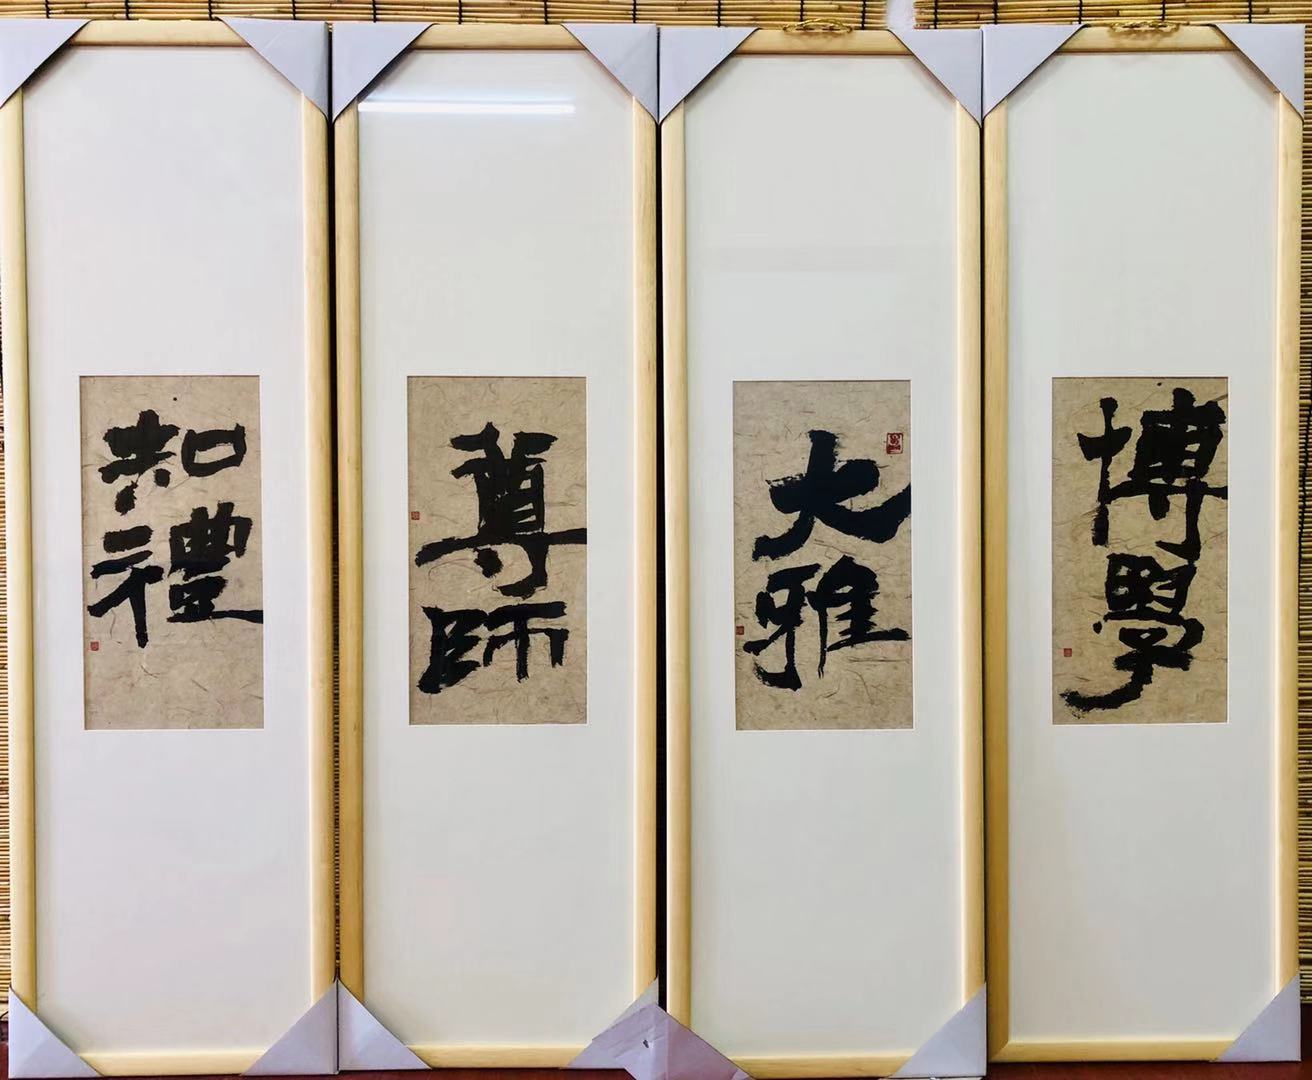 博學
大雅
尊師
知禮